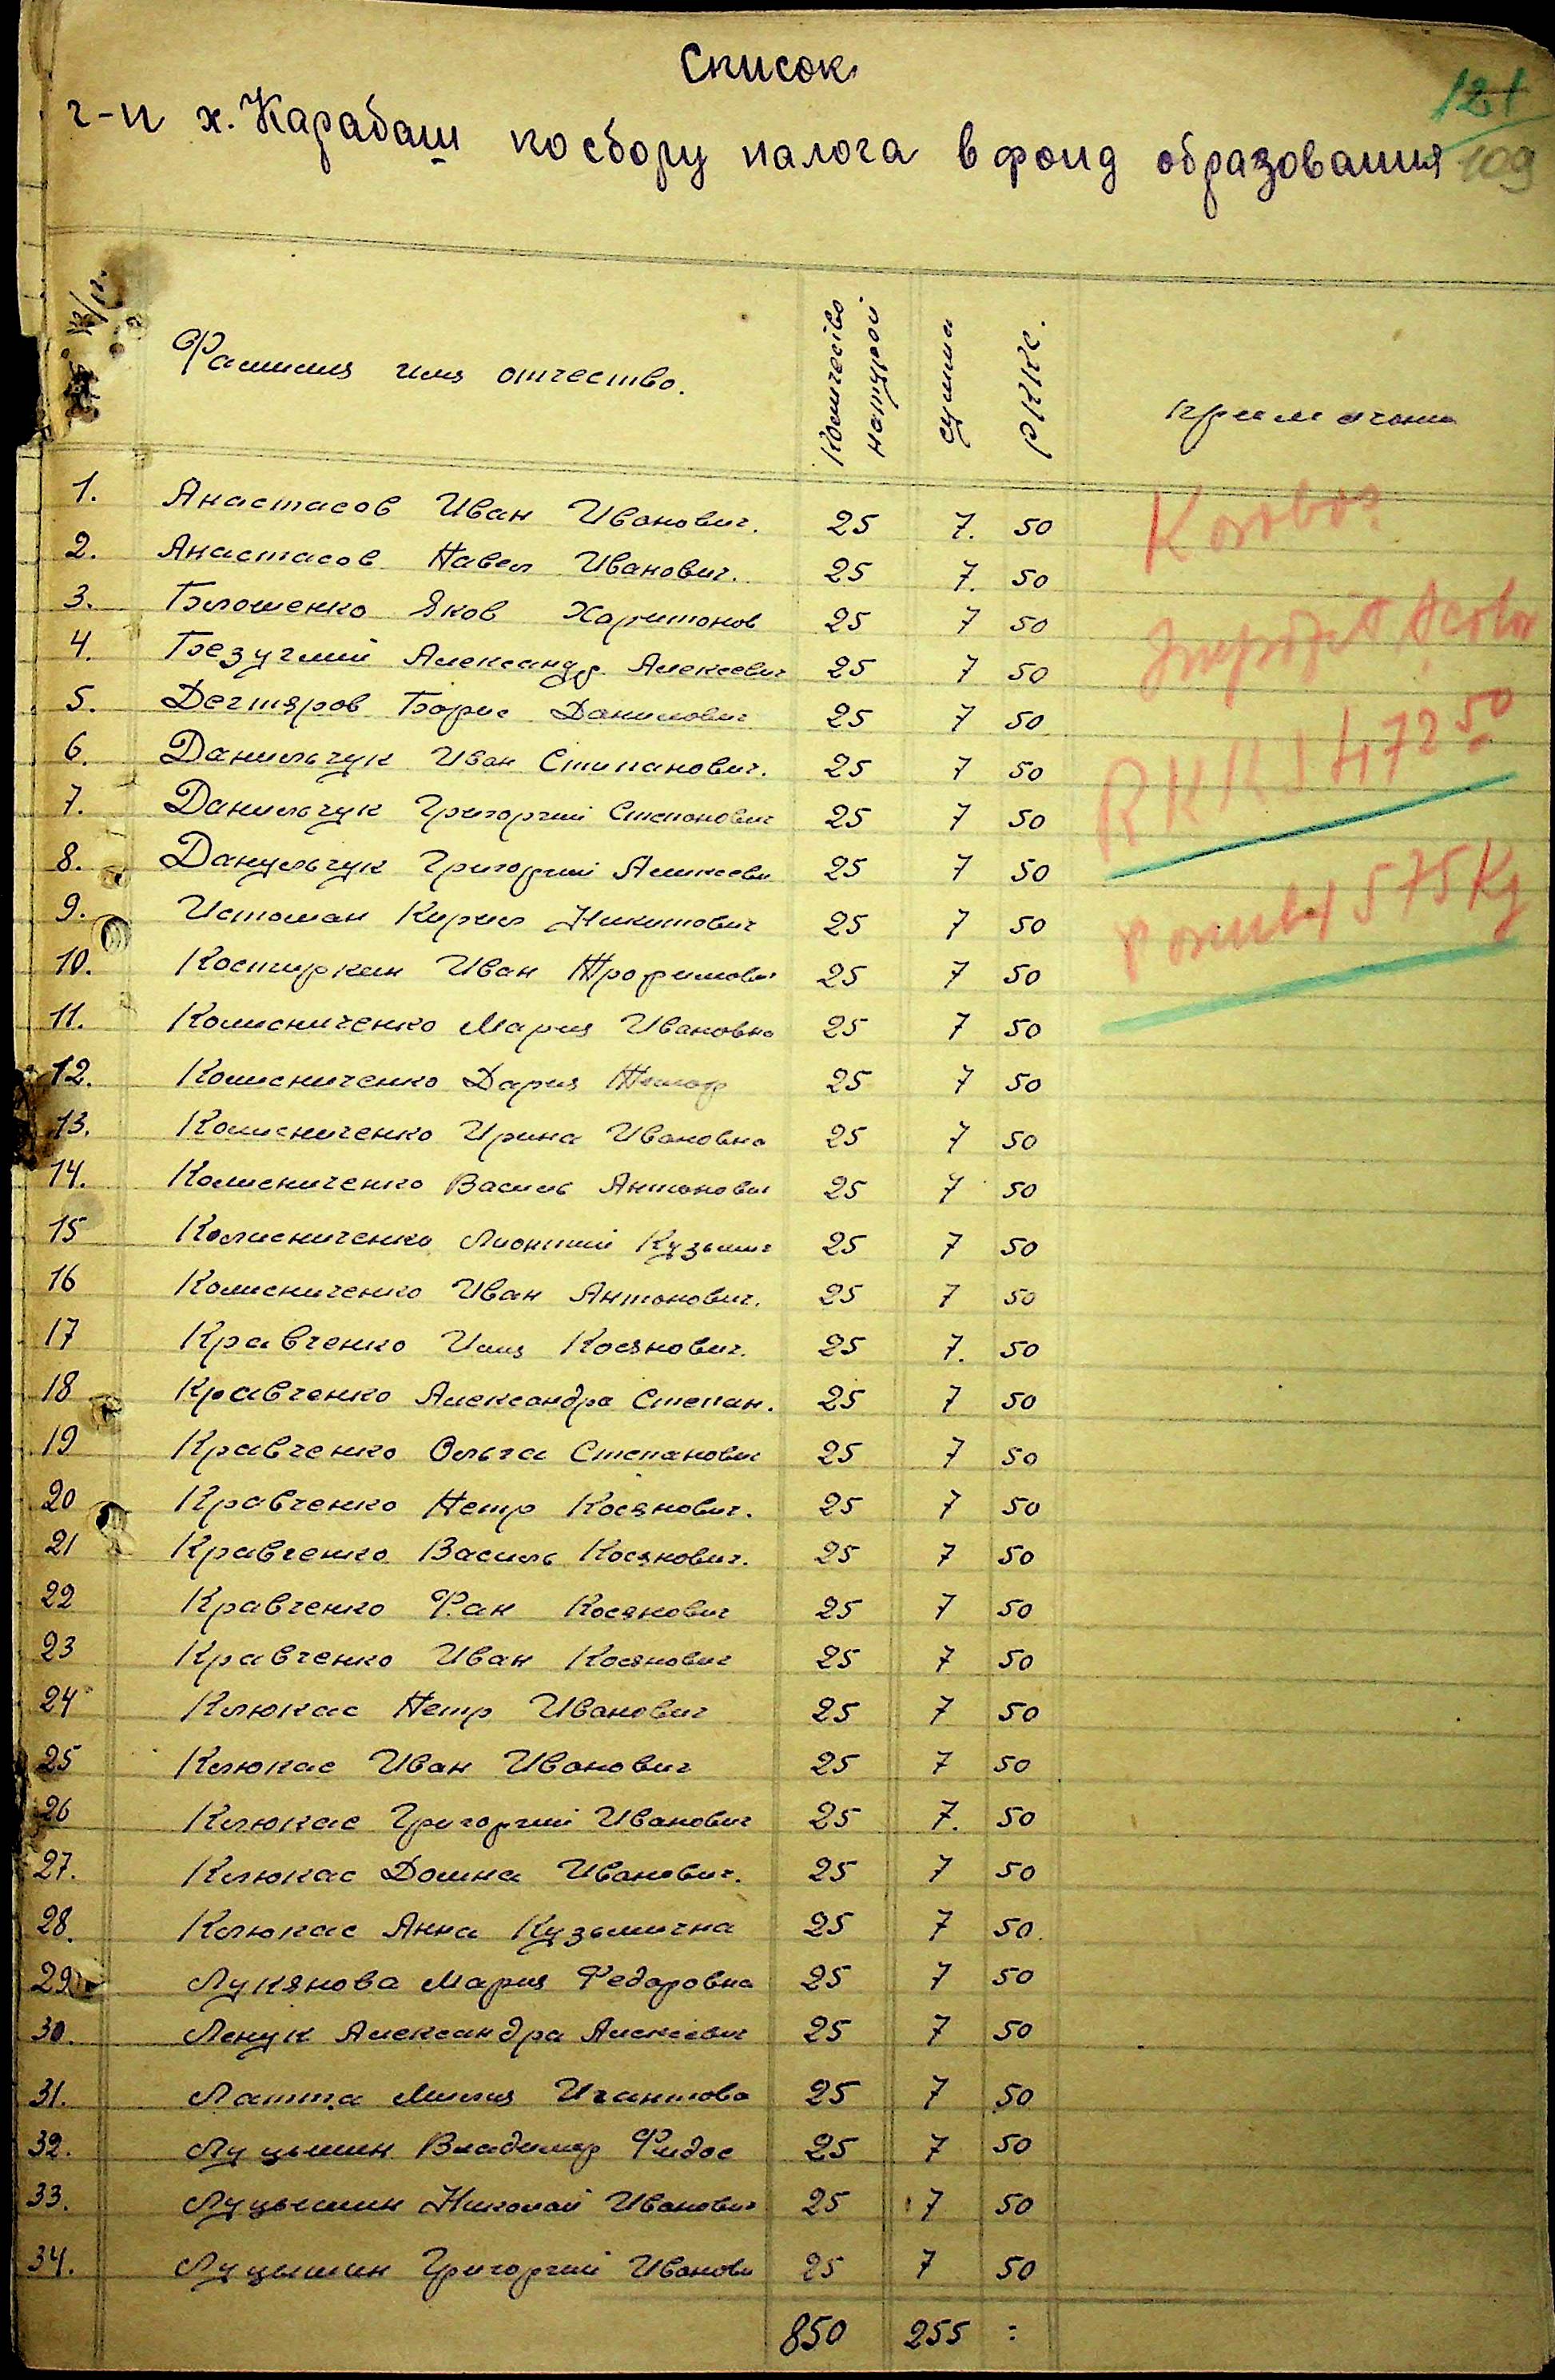 Список
г-н х. Карабаш по сбору налога в фонд образования
121
109
Фамилия имя отчество. Количество натурой сумма РККС. примечани
1. Анастасов Иван Иванович. 25 7. 50
2. Анастасов Павел Иванович. 25 7. 50
3. Билошенко Яков Харитонов 25 7 50
4. Безуглий Александр Алексеевич 25 7 50
5. Дегтяров Борис Данилович 25 7 50
6. Данильчук Иван Стипанович. 25 7 50
7. Данильчук Григорий Степанович 25 7 50
8. Данульчук Григорий Алексееви 25 7 50
9. Истоман Кирил Никитович 25 7 50
10. Костиркин Иван Трофимович 25 7 50
11. Колисниченко Мария Ивановна 25 7 50
12. Колисниченко Дария 25 7 50
13. Колисниченко Ирина Ивановна 25 7 50
14. Колисниченко Василь Антонович 25 7 50
15 Колисниченко Лионтий Кузьмич 25 7 50
16 Колисниченко Иван Антонович. 25 7 50
17 Кравченко Илия Косянович. 25 7. 50
18 Кравченко Александра Степан. 25 7 50
19 Кравченко Ольга Степанович 25 7 50
20 Кравченко Петр Косянович. 25 7 50
21 Кравченко Василь Косянович. 25 7 50
22 Кравченко Фан Косянович 25 7 50
23 Кравченко Иван Косянович 25 7 50
24 Клюкас Петр Иванович 25 7 50
25 Клюкас Иван Иванович 25 7 50
26 Клюкас Григорий Иванович 25 7. 50
27. Клюкас Домна Иванович. 25 7 50
28. Клюкас Анна Кузьмична 25 7 50.
29. Лукянова Мария Федоровна 25 7 50
30. Ленук Александра Алексеевич 25 7 50
31. Латта Милия Игантова 25 7 50
32. Луцышин Владимир Фидос 25 7 50
33. Луцышин Николай Иванович 25 7 50
34. Луцышин Григорий Иванови 25 7 50
850 255 :
RKKS 472 50
575 Kg